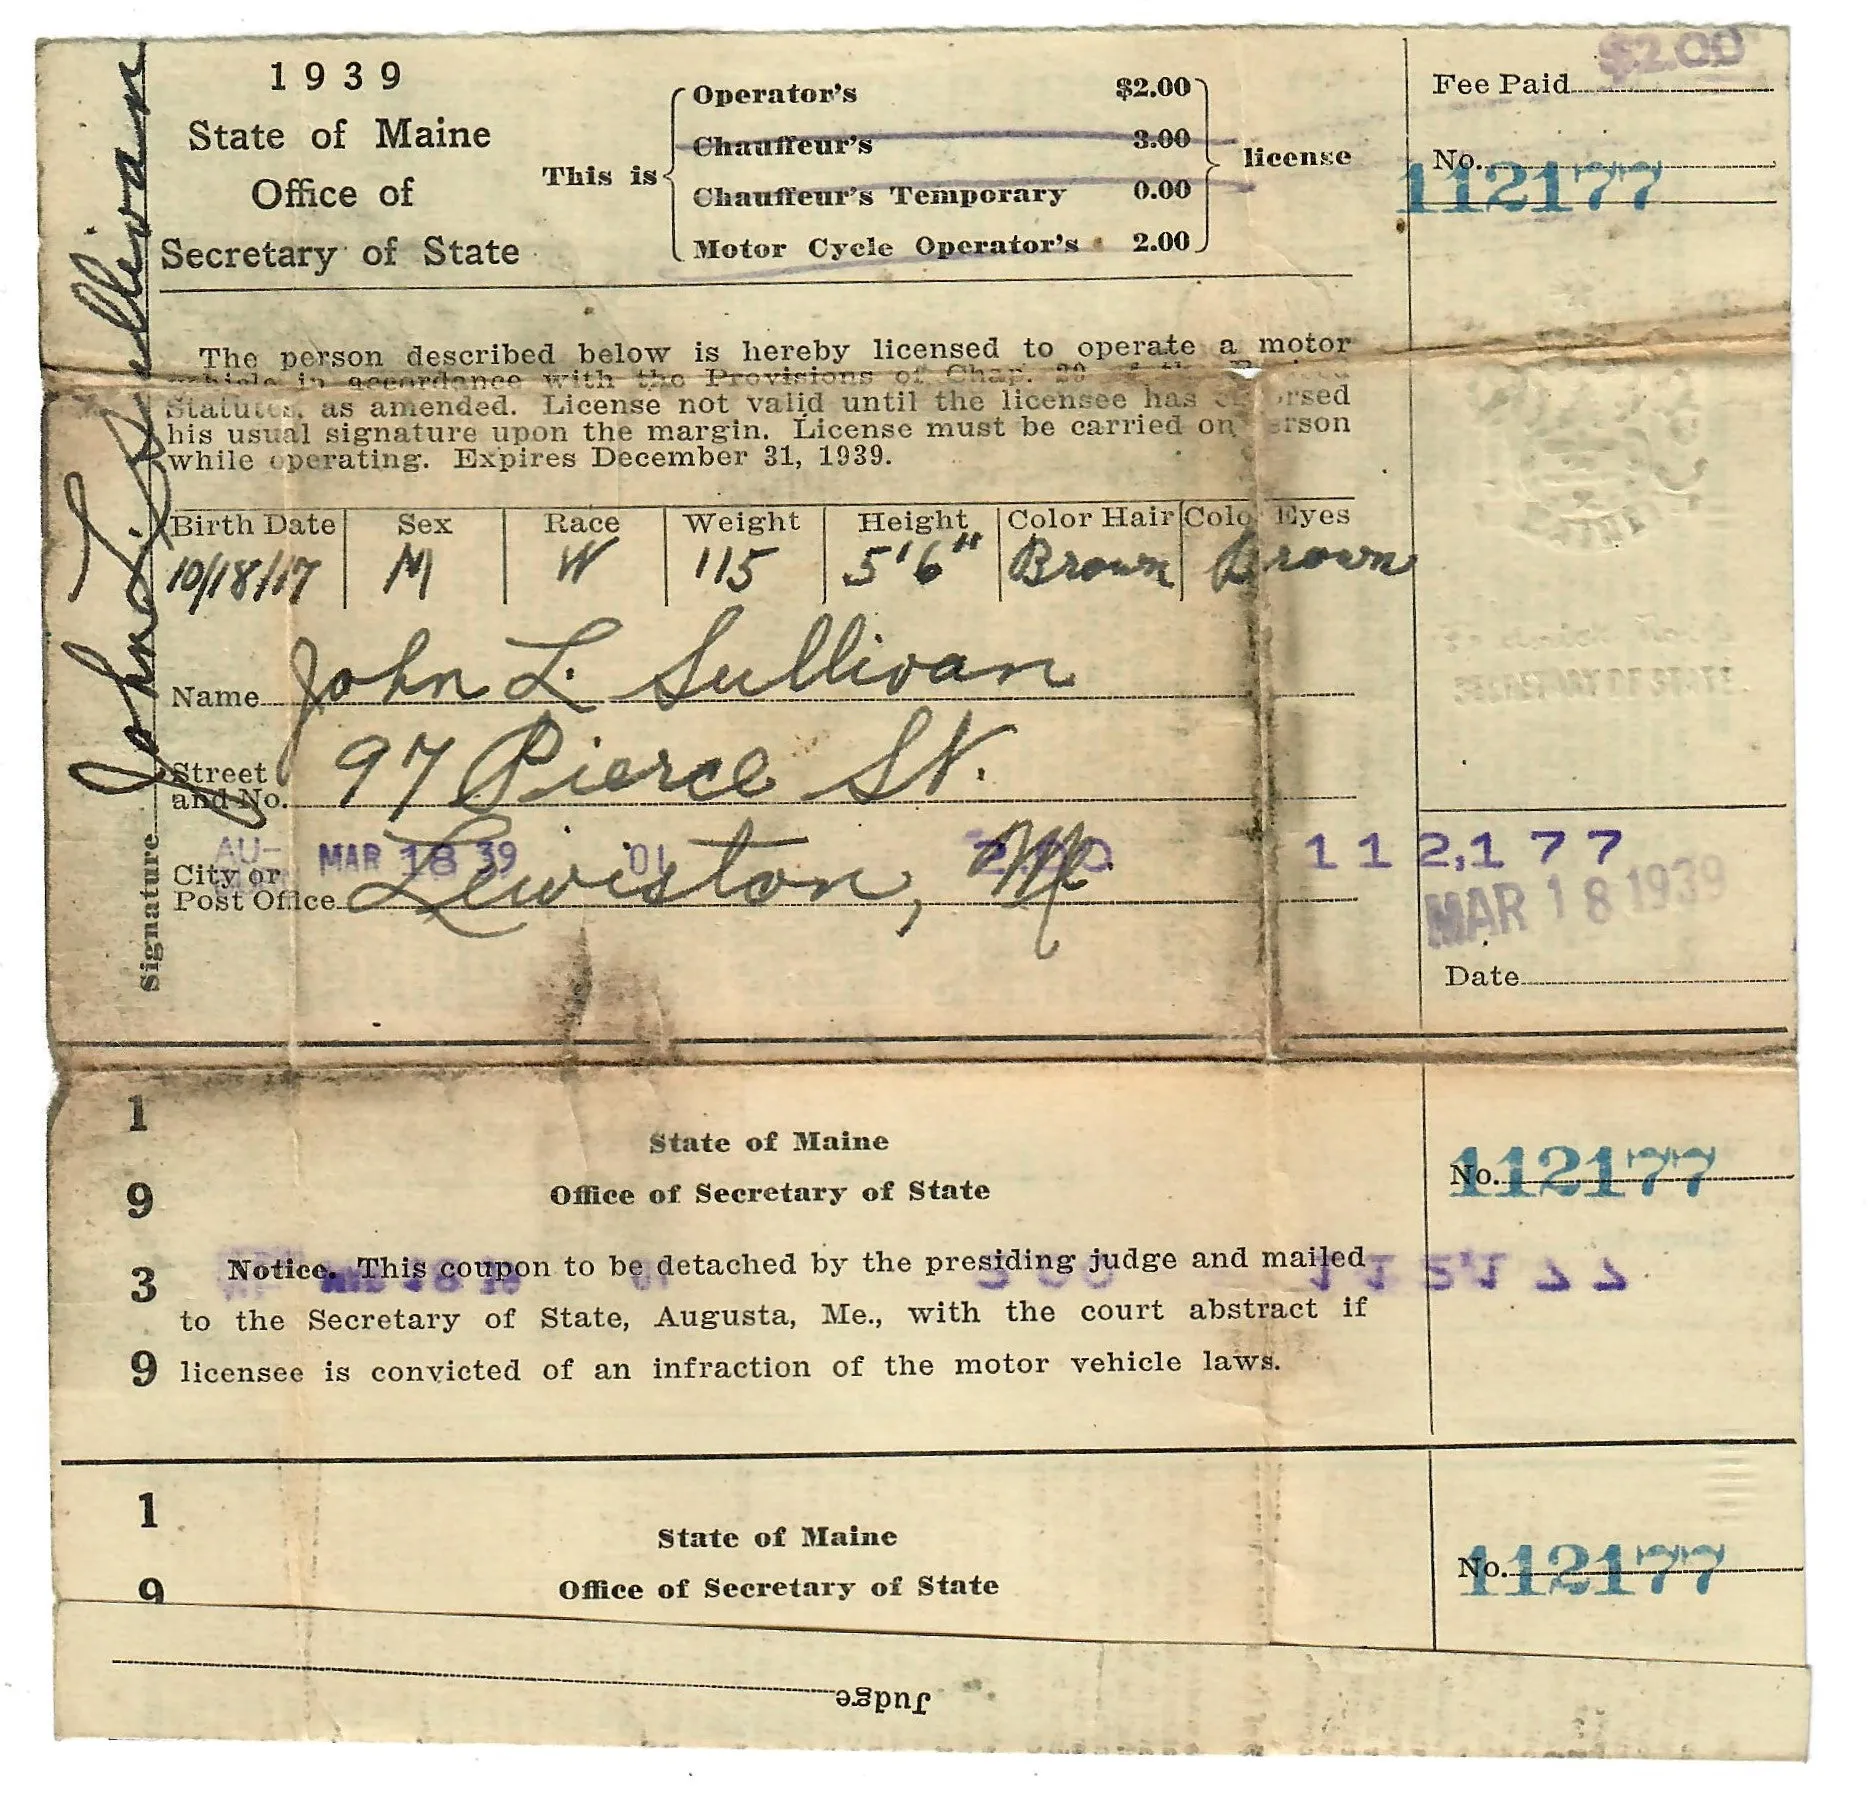 1939
State of Maine
Office of
Secretary of State
This is
Operator's $2.00
Chauffeur's 3.00
Chauffeur's Temporary 0.00
Motor Cycle Operator's 2.00
license
Fee Paid $2.00
No. 112177
The person described below is hereby licensed to operate a motor
vehicle in accordance with the Provisions of Chap. 29 of the
Statutes, as amended. License not valid until the licensee has
his usual signature upon the margin. License must be carried on
while operating. Expires December 31, 1939.
Birth Date Sex Race Weight Height Color Hair Color Eyes
10/18/17 M W 115 5'6" Brown Brown
Name John L. Sullivan
Street and No. 97 Pierce St.
AU- MAR 18 39 01 2.00 112,177
City or Post Office Lewiston, Me
Signature John L. Sullivan
MAINE
SECRETARY OF STATE
MAR 18 1939
Date
1939
State of Maine
Office of Secretary of State
No. 112177
Notice. This coupon to be detached by the presiding judge and mailed
to the Secretary of State, Augusta, Me., with the court abstract if
licensee is convicted of an infraction of the motor vehicle laws.
MAR 18 39 01 2 00 112,177
19
State of Maine
Office of Secretary of State
No. 112177
Judge